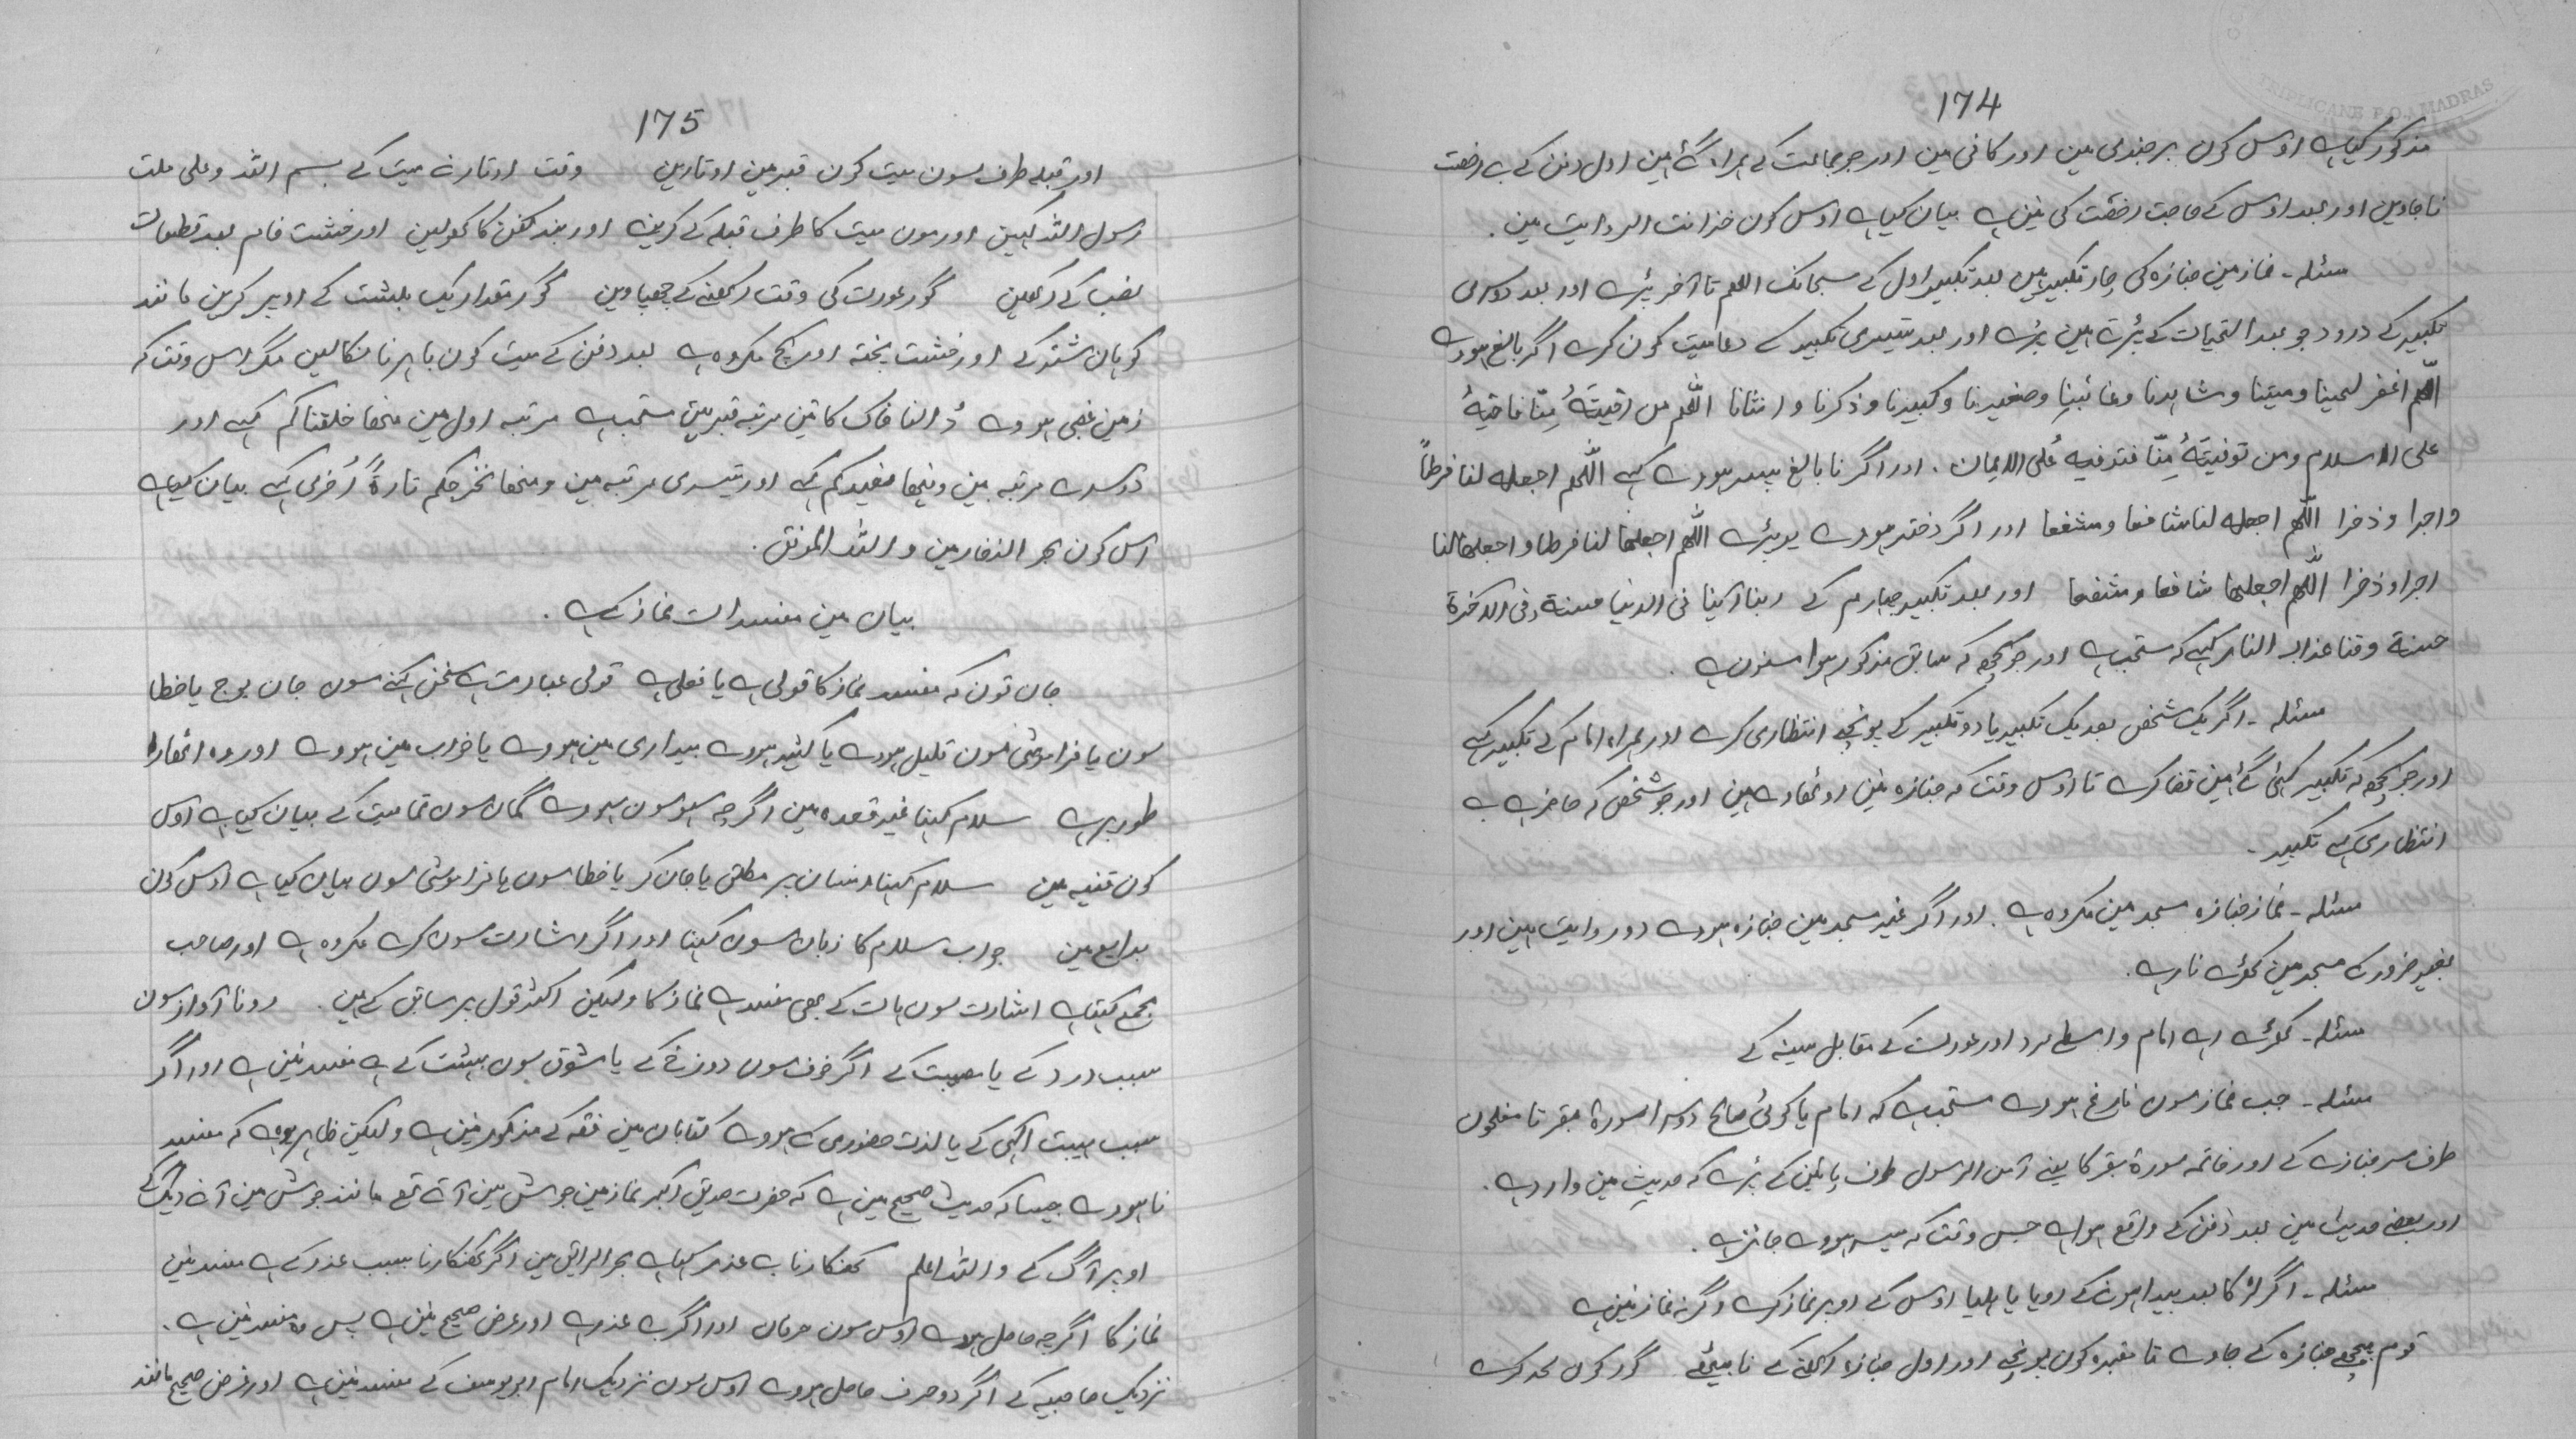 174
مذکور کیا ہے اوس کون برجندی مین اور کافی مین اور جو جماعت کے ہمراہ گئے ہین اول دفن کے بے رخصت
نا جاوین اور بعد اوس کے حاجت رخصت کی نین ہے بیان کیا ہے اوس کون خزانت الروایت مین۔
مسئلہ۔ نماز مین جنازہ کی چار تکبیر ہین بعد تکبیر اول کے سبحانک اللھم تا آخر پڑے اور بعد دوسری
تکبیر کے درود جو بعد التحیات کے پڑتے ہین پڑے اور بعد تیسری تکبیر کے دعا میت کون کرے اگر بالغ ہووے
اللّٰھم اغفر لحینا ومیتنا وشاہدنا وغائبنا وصغیرنا وکبیرنا وذکرنا وانثانا اللّٰھم من احییتہٗ مِنّا فاحیہٖ
علی الاسلام ومن توفیتہٗ مِنّا فتوفیہ عُلی الایمان۔ اور اگر نا بالغ پسر ہووے کہے اللّٰھم اجعلہ لنا فرطاً
واجرا وذخرا اللّٰھم اجعلہ لنا شافعا ومشفعا اور اگر دختر ہووے یو پڑے اللّٰھم اجعلھا لنا فرطا واجعلھا لنا
اجرا وذخرا اللّٰھم اجعلھا شافعا ومشفعا اور بعد تکبیر چہارم کے ربنا آتینا فی الدنیا حسنة وفی الآخرة
حسنة وقنا عذاب النار کہے کہ مستحب ہے اور جو کچھ کہ سابق مذکور ہوا مسنون ہے۔
مسئلہ۔ اگر یک شخص بعد یک تکبیر یا دو تکبیر کے پونچے انتظاری کرے اور ہمراہ امام کے تکبیر کہے
اور جو کچھ کہ تکبیر کہی گئی ہین قضا کرے تا اوس وقت کہ جنازہ نین اوٹھاوے ہین اور جو شخص کہ حاضر ہے بے
انتظاری کہے تکبیر۔
مسئلہ۔ نماز جنازہ مسجد مین مکروہ ہے۔ اور اگر غیر مسجد مین جنازہ ہووے دو روایت ہین اور
بغیر ضرورت مسجد مین کھڑے نارے۔
مسئلہ۔ کھڑے رہے امام واسطے مرد اور عورت کے مقابل سینہ کے
مسئلہ۔ جب نماز سون فارغ ہووے مستحب ہے کہ امام یا کوئی صالح دوسرا سورۂ بقر تا مفلحون
طرف سر جنازے کے اور خاتمہ سورۂ بقر کا یعنے آمن الرسول طرف پائین کے پڑے کہ حدیث مین وارد ہے۔
اور بعضے حدیث مین بعد دفن کے واقع ہوا ہے جس وقت کہ میسر ہووے جائز ہے۔
مسئلہ۔ اگر لڑکا بعد پیدا ہونے کے رویا یا ہلیا اوس کے اوپر نماز کرے وگرنہ نماز نین ہے
قوم پیچھے جنازہ کے جاوے تا مقبرہ کون پونچے اور اول جنازا رکھنے کے نا بیٹھے گور کون لحد کرے
175
اور قبلہ طرف سون میت کون قبر مین اوتارین وقت اوتارنے میت کے بسم اللہ وعلی ملت
رسول اللہ کہین اور مون میت کا طرف قبلہ کے کرین اور بند کفن کا کھولین اور خشت خام بعد قطعات
نصب کے رکھین گور عورت کی وقت رکھنے کے چھپاوین گور مقدار یک بلشت کے اوپر کرین مانند
کوہان شتر کے اور خشت پختہ اور گچ مکروہ ہے بعد دفن کے میت کون باہر نا نکالین مگر اس وقت کہ
زمین غصبی ہووے ڈالنا خاک کا تین مرتبہ قبر مین مستحب ہے مرتبہ اول مین منھا خلقناکم کہے اور
دوسرے مرتبہ مین وفیھا نعیدکم کہے اور تیسری مرتبہ مین ومنھا نخرجکم تارةً اُخری کہے بیان کیا ہے
اس کون بحر الذخار مین واللہ الموفق۔
بیان مین مفسدات نماز کے ہے۔
جان تون کہ مفسد نماز کا قولی ہے یا فعلی ہے قولی عبارت ہے سخن کہنے سون جان بوج یا خطا
سون یا فراموشی سون قلیل ہووے یا کثیر ہووے بیداری مین ہووے یا خواب مین ہووے اور وہ اٹھارا
طور پر ہے سلام کہنا غیر قعدہ مین اگرچہ سہو سون ہووے گمان سون تمامیت کے بیان کیا ہے اوس
کون قنیہ مین سلام کہنا انسان پر مطلق یا جان کر یا خطا سون یا فراموشی سون بیان کیا ہے اوس کون
بدایع مین جواب سلام کا زبان سون کہنا اور اگر اشارت سون کرے مکروہ ہے اور صاحب
مجمع کہتا ہے اشارت سون ہات کے بھی مفسد ہے نماز کا ولیکن اکثر قول پر سابق کے ہین۔ رونا آواز سون
سبب درد کے یا مصیبت کے اگر خوف سون دوزخ کے یا شوق سون بہشت کے ہے مفسد نین ہے اور اگر
سبب ہیبت الٰہی کے یا لذت حضوری کے ہووے کتابان مین فقہ کے مذکور نین ہے ولیکن ظاہر یوہے کہ مفسد
نا ہووے جیسا کہ حدیث صحیح مین ہے کہ حضرت صدیق اکبر نماز مین جوش مین آتے تھے مانند جوش مین آنے دیگ کے
اوپر آگ کے واللہ اعلم کھنکارنا بے عذر کیا ہے بحر الرایق مین اگر کھنکارنا سبب عذر کے ہے مفسد نین
نماز کا اگرچہ حاصل ہووے اوس سون حرفان اور اگر بے عذر ہے اور غرض صحیح نین ہے پس وہ مفسد نین ہے۔
نزدیک صاحبیہ کے اگر دو حرف حاصل ہووے اوس سون نزدیک امام ابو یوسف کے مفسد نین ہے اور غرض صحیح مانند